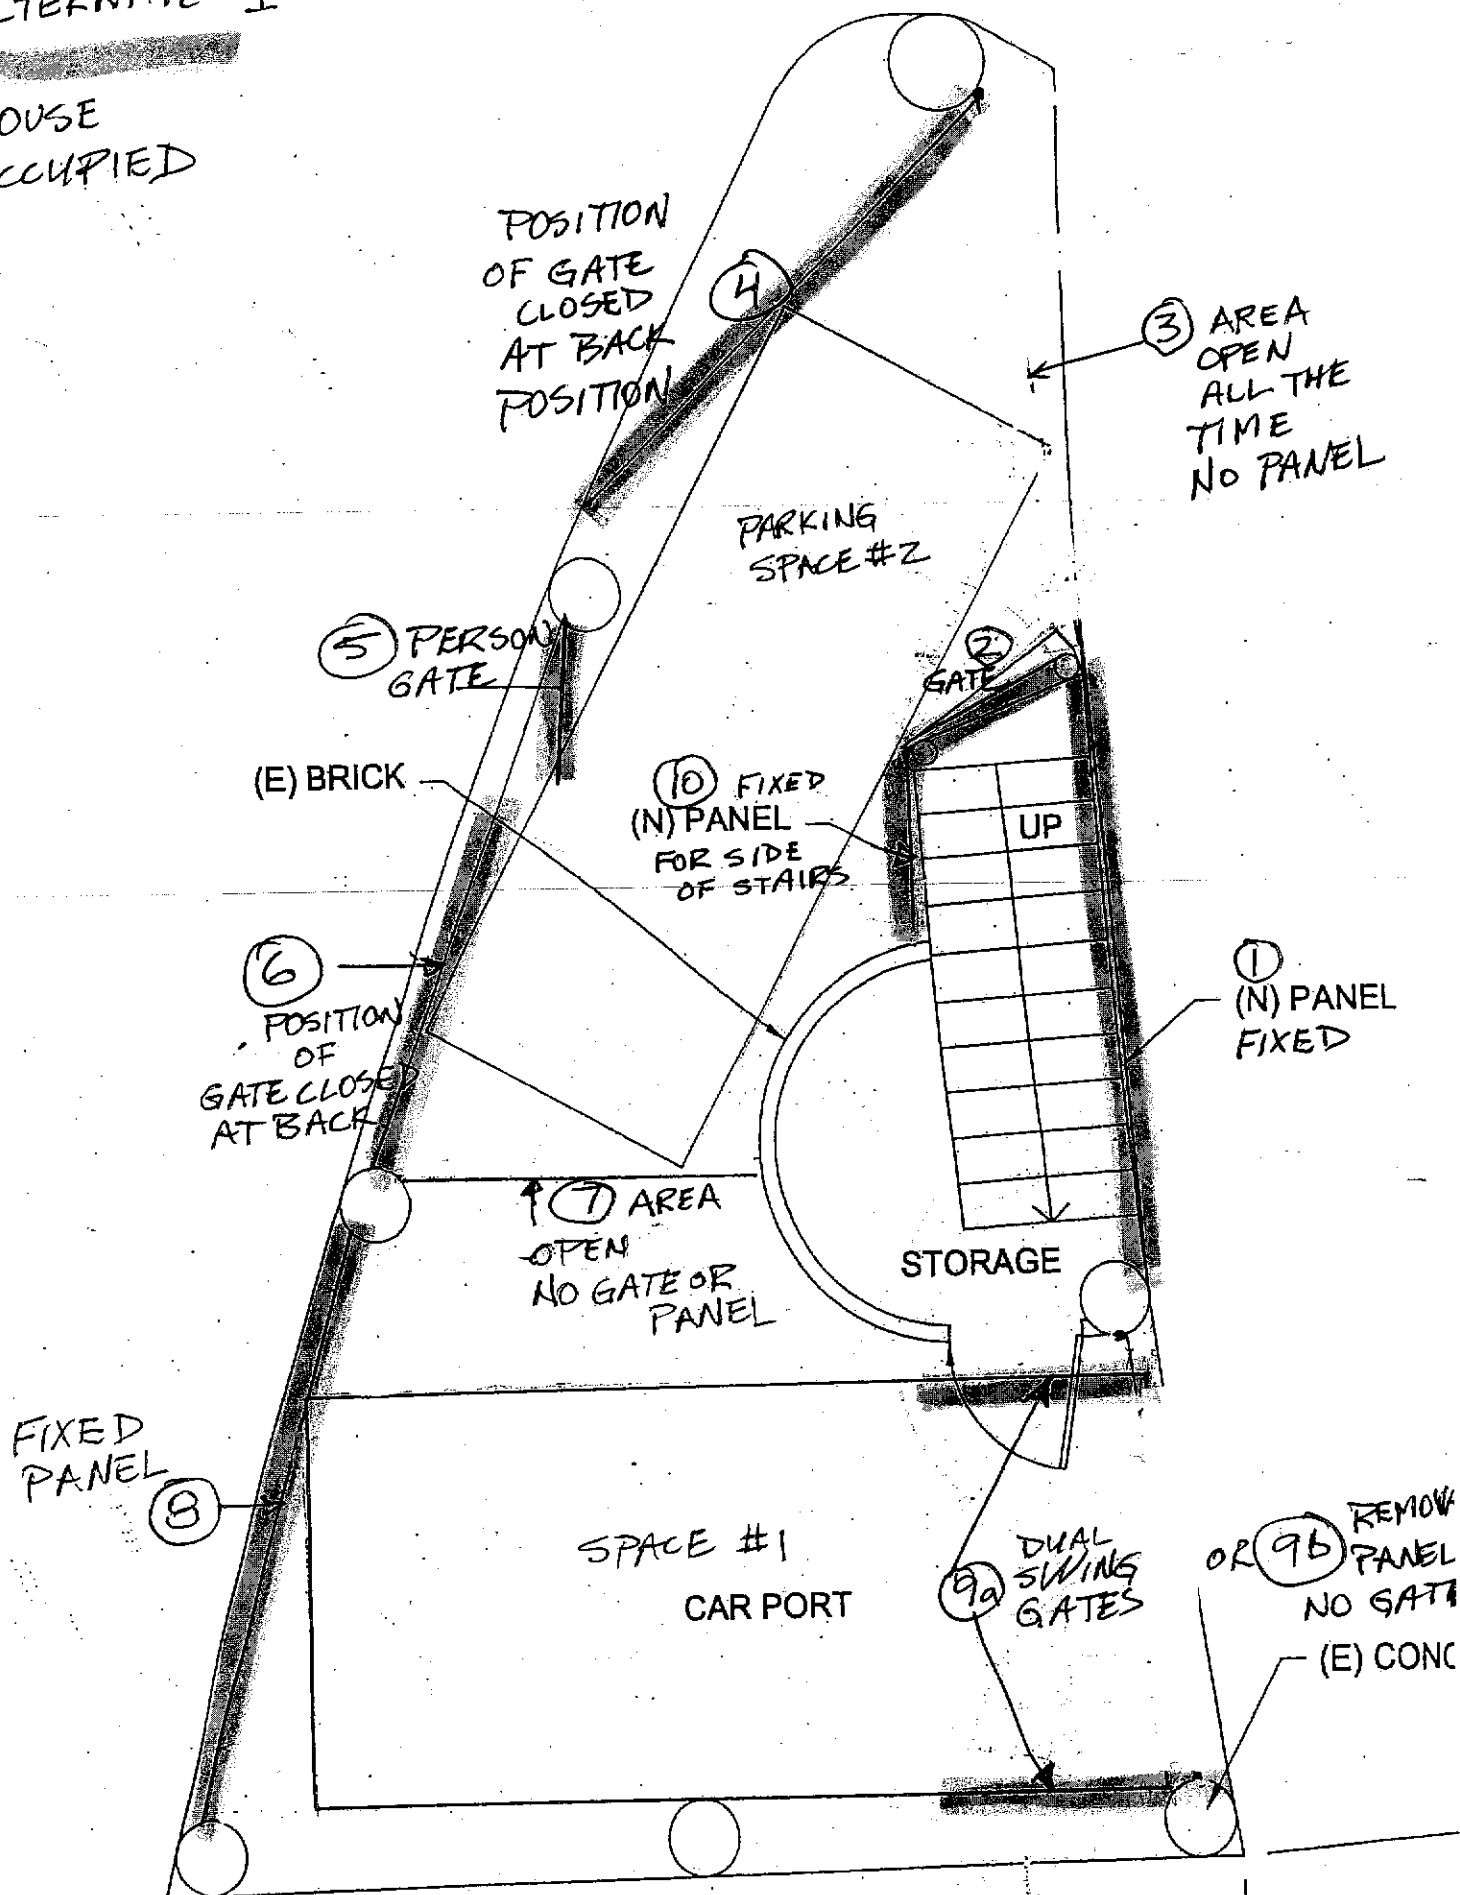 LTERNATE I
OUSE
CCUPIED
POSITION
OF GATE
CLOSED
AT BACK
POSITION
4
3 AREA
OPEN
ALL THE
TIME
NO PANEL
PARKING
SPACE #2
5 PERSON
GATE
2
GATE
(E) BRICK
10 FIXED
(N) PANEL
FOR SIDE
OF STAIRS
UP
6
POSITION
OF
GATE CLOSED
AT BACK
1
(N) PANEL
FIXED
7 AREA
OPEN
NO GATE OR
PANEL
STORAGE
FIXED
PANEL
8
SPACE #1
CAR PORT
9a DUAL
SWING
GATES
OR 9b REMOV
PANEL
NO GAT
(E) CONC